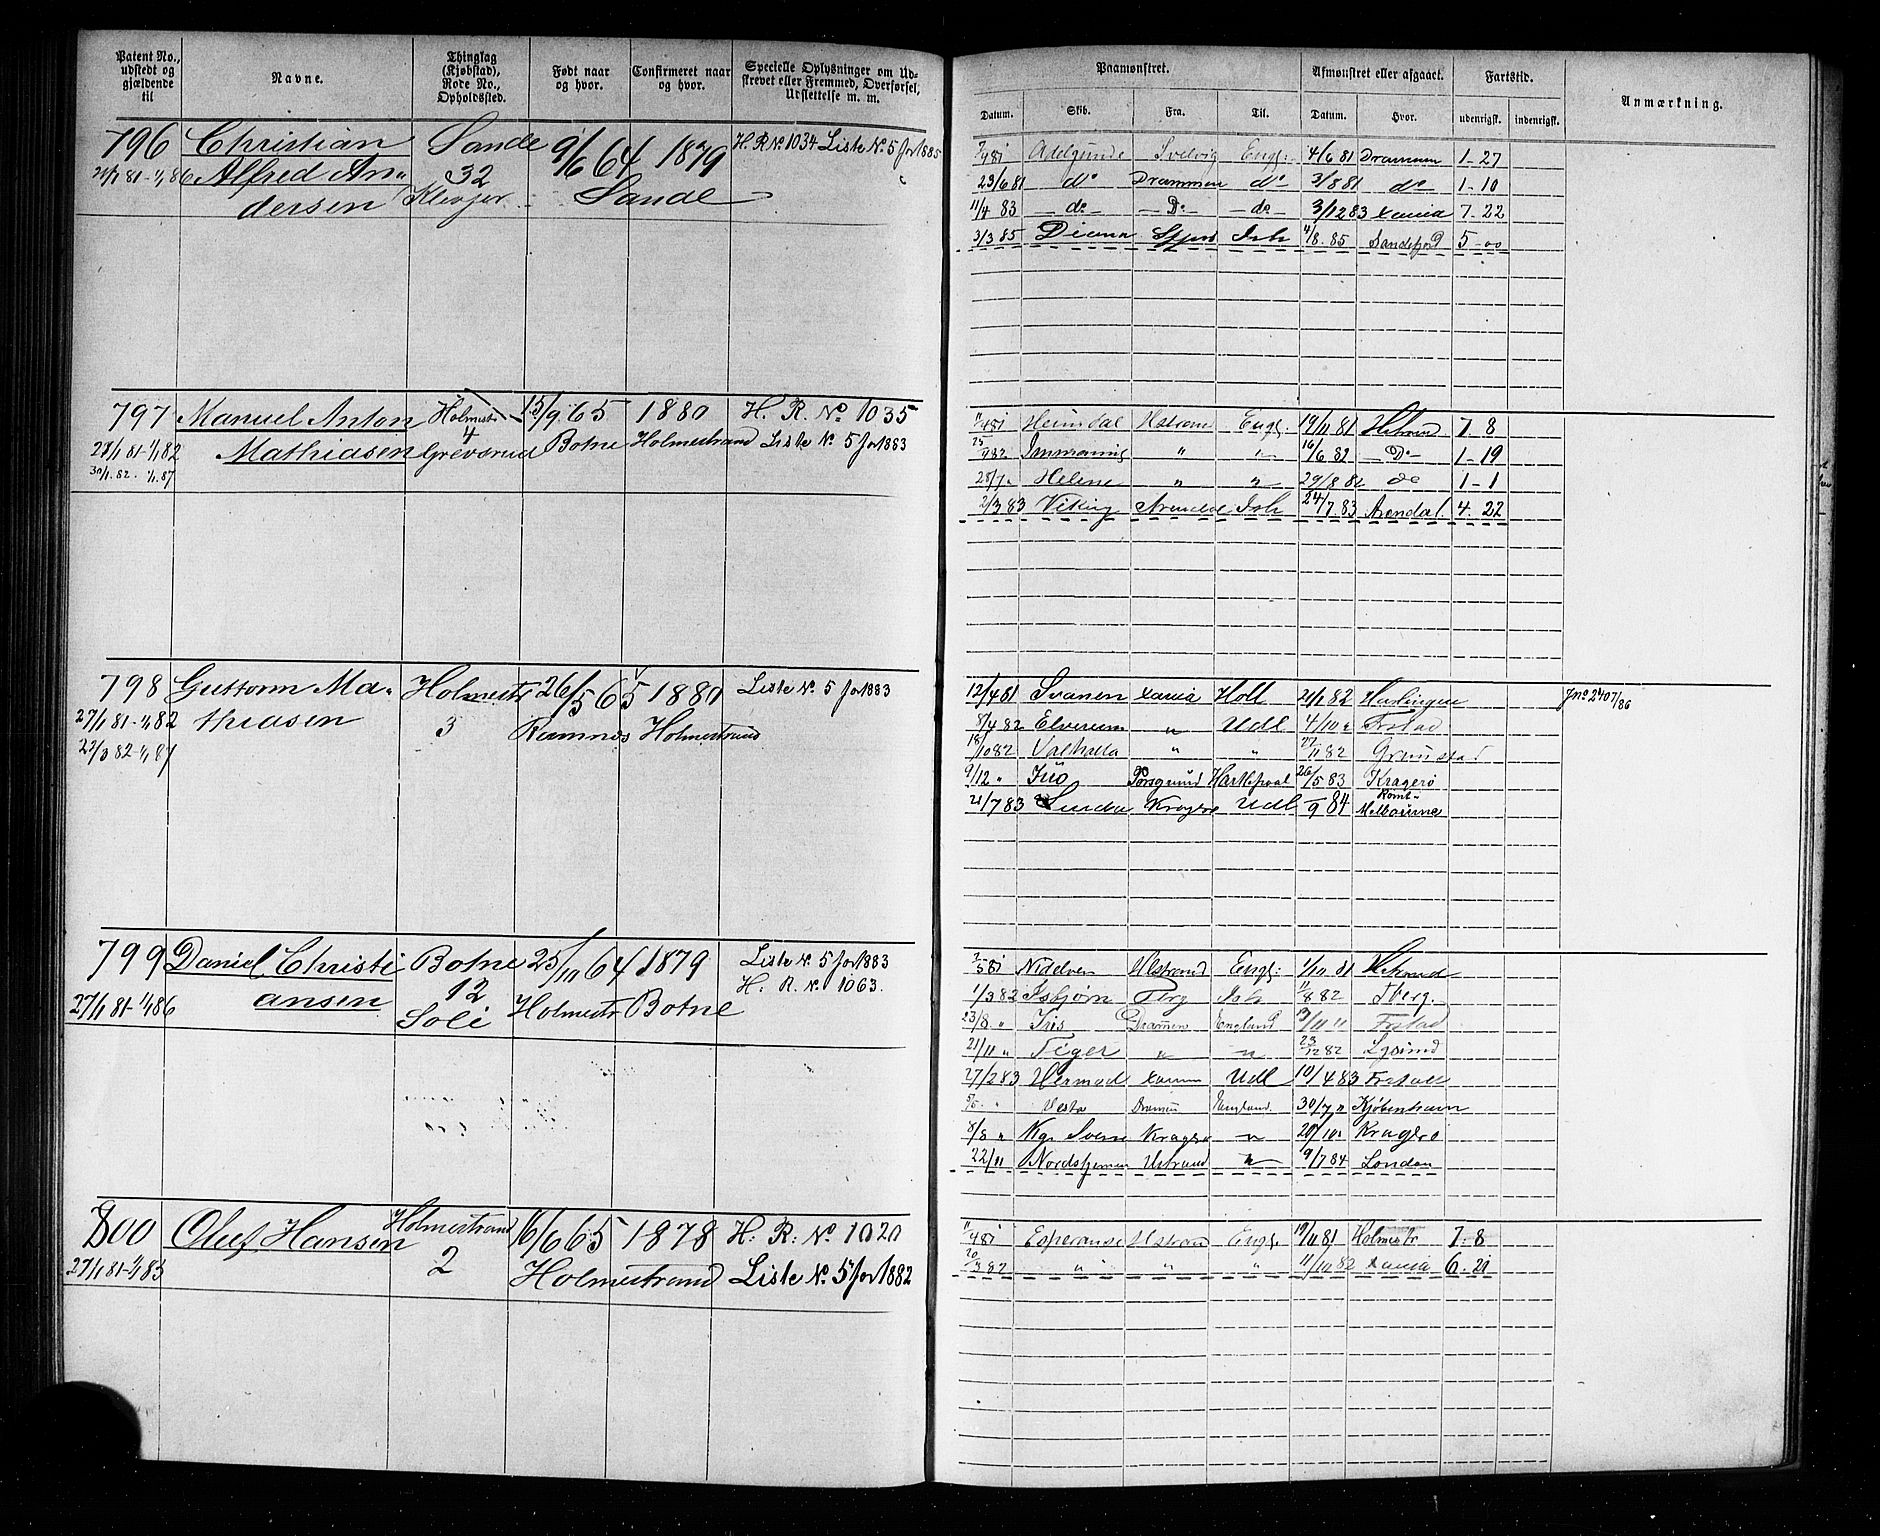 Patent No., udstedt og gjældende til
Navne.
Thinglag (Kjøbstad), Rode No., Opholdssted.
Født naar og hvor.
Confirmeret naar og hvor.
Specielle Oplysninger om Udskrevet eller Fremmed, Overførsel, Udslettelse m. m.
Paamønstret.
Afmønstret eller afgaaet.
Fartstid.
Anmærkning.
Datum. Skib. Fra. Til. Datum. Hvor. udenrigsk. indenrigsk.
796 Christian Sande 9/6 64 1879 H. R. No 1034 Liste No. 5 for 1885
Alfred An- 32 Sande
dersen
Adelgunde Svelvig Engl: 4/6 81 Drammen 1-27
23/6 81 do Drammen do 3/8 81 do 1-10
11/4 83 do Do do 3/12 83 Xania 7-22
3/3 85 Diana Ish 4/8 85 Sandefjord 5-00
797 Manuel Anton Holmestr 15/9 65 1880 H. R. No 1035
Mathiasen 4 Grevsrud Botne Holmestrand Liste No. 5 for 1883
28/1 81-1/1 82
30/1 82. 1/1 87
Heimdal Hstrand Engl. 19/11 81 Hstrand 7 8
" " 16/6 82 Do 1-19
28/7 " Helene " " 29/8 82 do 1-1
2/3 83 Viking Arendal Ish 24/7 83 Arendal. 4. 22
798 Guttorm Ma- Holmestr 26/5 65 1880 Liste No. 5 for 1883
thiasen 3 Ramnes Holmestrand
27/1 81-1/1 82
22/3 82-1/1 87
12/4 81 Svanen Xania Holl 21/1 82 Harlingen Jno 2407/86
8/4 82 Elverum " Udl 4/10 " Frstad
18/10 82 Valhalla " " 27/11 82 Grimstad
9/12 " Juno Porsgrund Hartlepool 26/5 83 Kragerø
21/7 83 Kragerø Udl 1/9 84 Rømt Melbourne
799 Daniel Christi Botne 25/10 64 1879 Liste No. 5 for 1883
ansen 12 Holmestr Botne H. R. No. 1063.
27/1 81-1/1 86 Soli
Nidelven Hstrand Engl: 1/10 81 Hstrand
1/3 82 Isbjørn Tbrg Ish 11/8 82 Tberg.
23/8 " Iris Drammen England 13/11 " Frstad
21/11 " Tiger " " 23/12 82
27/2 83 Hermod Xania Udl 10/4 83 Frstad
5/5 " Vesta Dramn England. 30/7 " Kjøbenhavn
8/8 " Kg. Sverre Kragerø " 20/10 " Kragerø
22/11 Nordstjernen Hstrand " 9/7 84 London
800 Oluf Hansen Holmestrand 16/6 65 1878 H. R. No 1020
27/1 81-1/1 83 2 Holmestrand Liste No. 5 for 1882
11/4 81 Esperance Hstrand Engl. 19/11 81 Holmestr 7. 8
20/3 82 " " " 11/10 82 Xania 6. 21